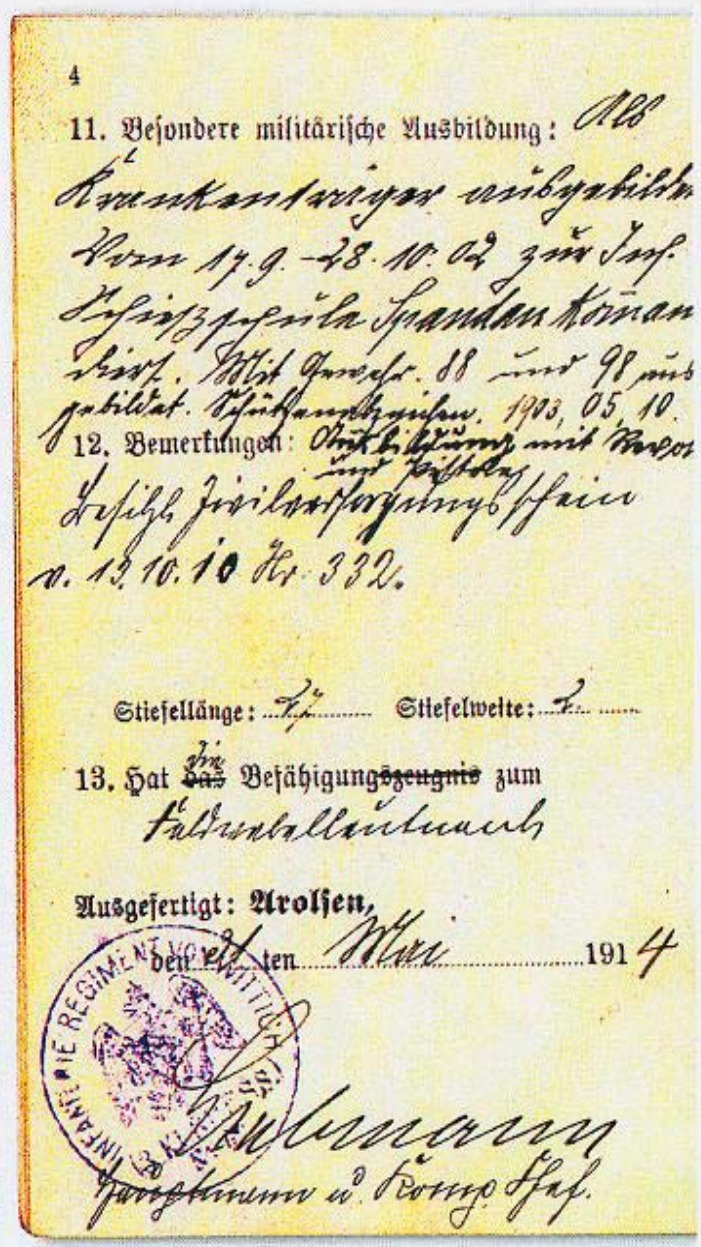 4
11. Besondere militärische Ausbildung: Als
Krankenträger ausgebilde
Vom 17.9.-28.10.02 zur Inf.
Schießschule Spandau Koman
diert. Mit Gewehr. 88 und 98 aus
gebildet. Schützenabzeichen. 1903, 05, 10.
12. Bemerkungen: Ausbildung mit Revol
und Pistole
Besitzt Zivilversorgungsschein
v. 13.10.10 Nr. 332.
Stiefellänge: 27 Stiefelweite: 2.
13. Hat das die Befähigungszeugnis zum
Feldwebelleutnant
Ausgefertigt: Arolsen,
den ten Mai 1914
INFANTERIE REGIMENT VON WITTICH (3. K
Hauptmann u. Komp. Chef.